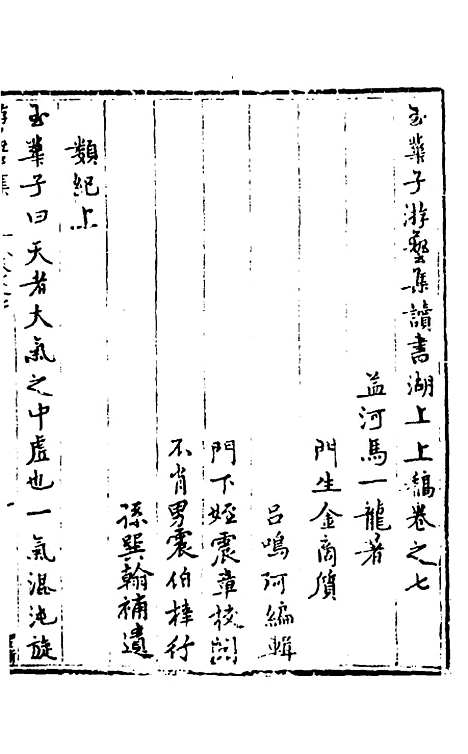 玉華子游藝集讀書湖上上稿卷之七
孟河馬一龍著
門生金商質
呂鳴珂編輯
門下姪震章校閱
不肖男震伯梓行
孫巽翰補遺
類紀上
玉華子曰天者大氣之中虛也一氣混沌旋